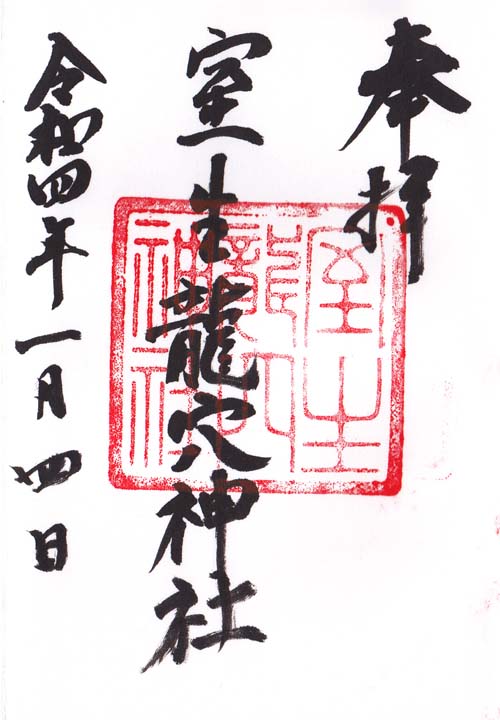 奉拝
室生龍穴神社
令和四年一月四日
室生龍穴神社